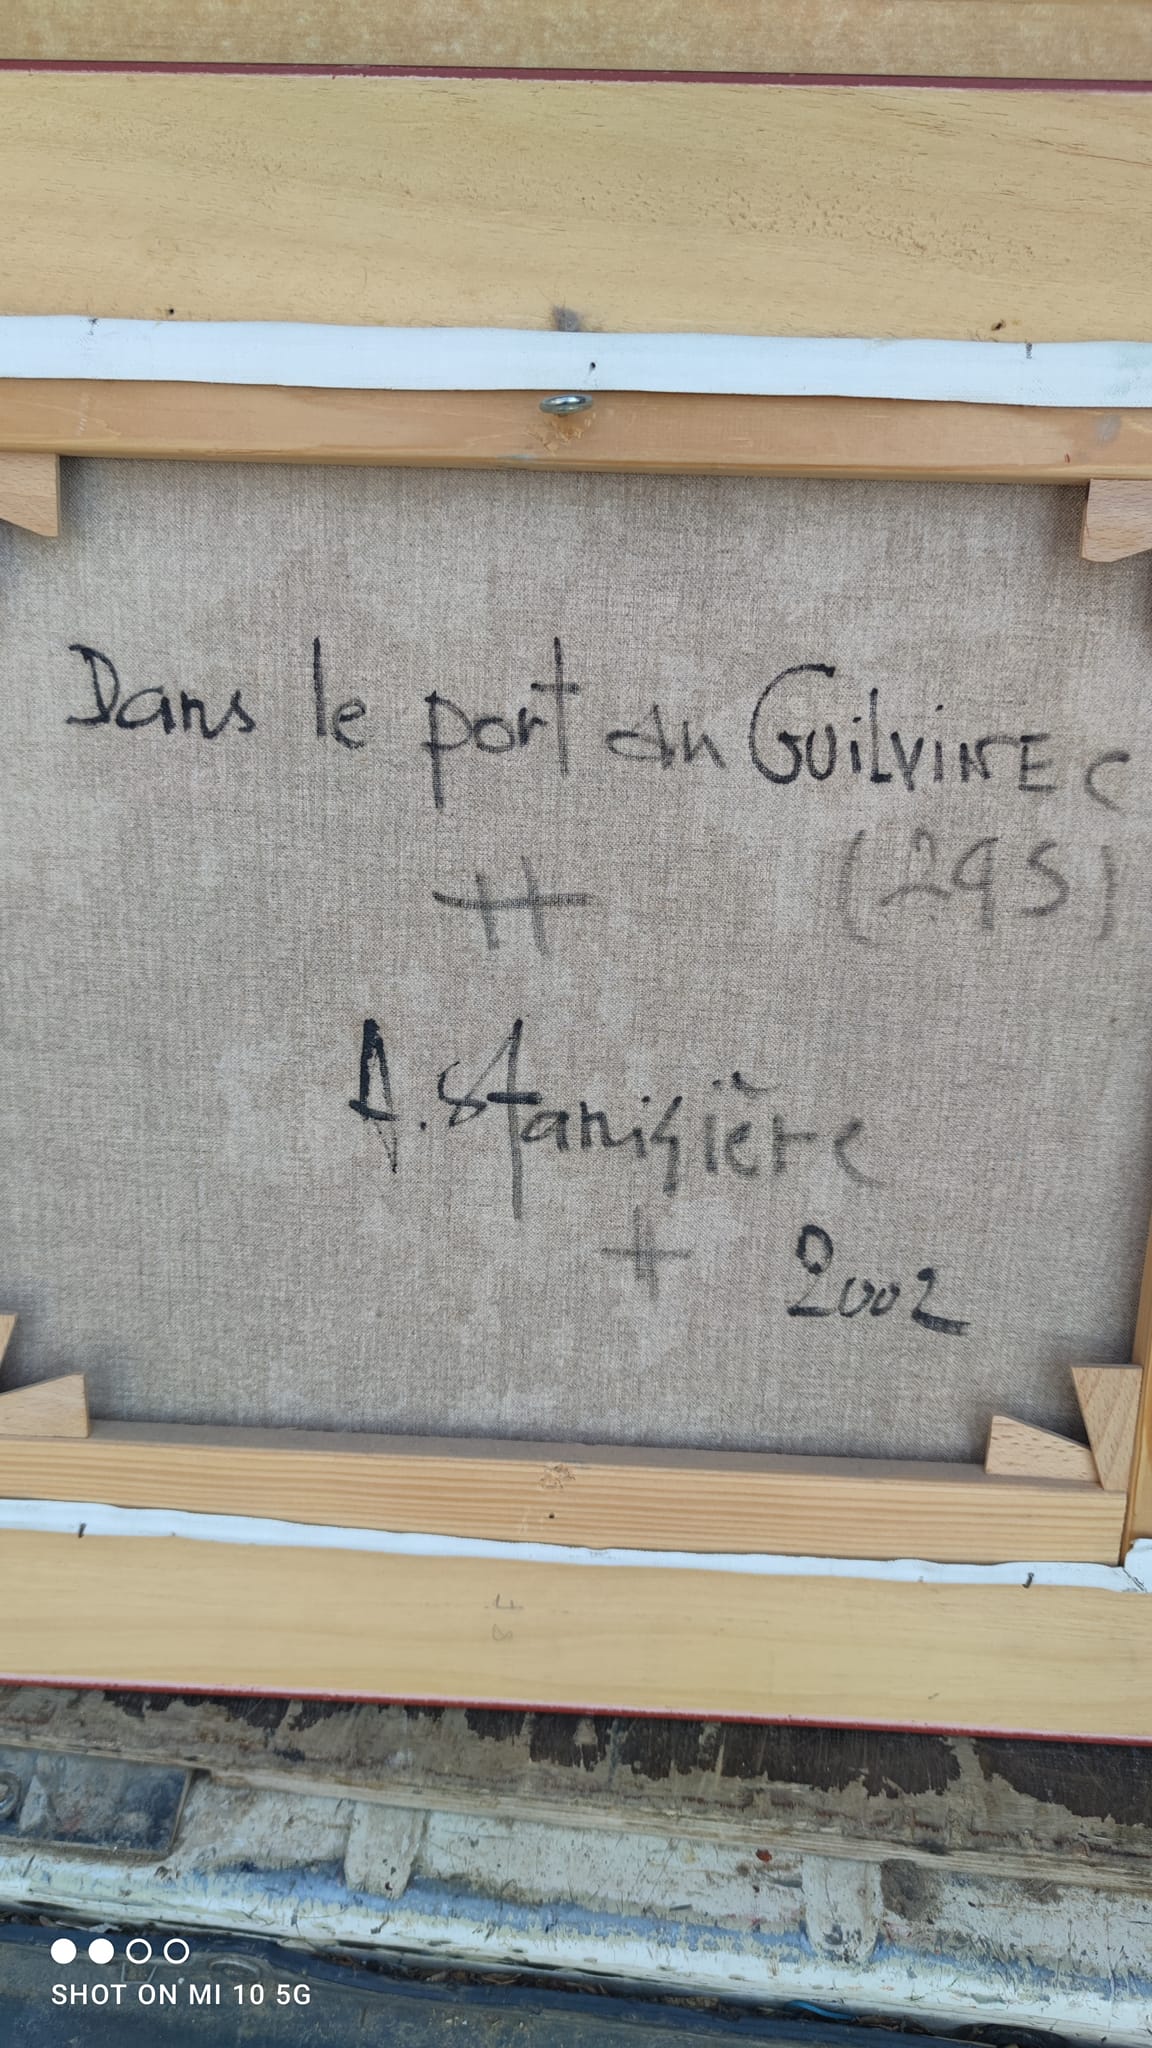 Dans le port du GUILVINEC
(29S)
++
A. Stanisière
+
2002
SHOT ON MI 10 5G